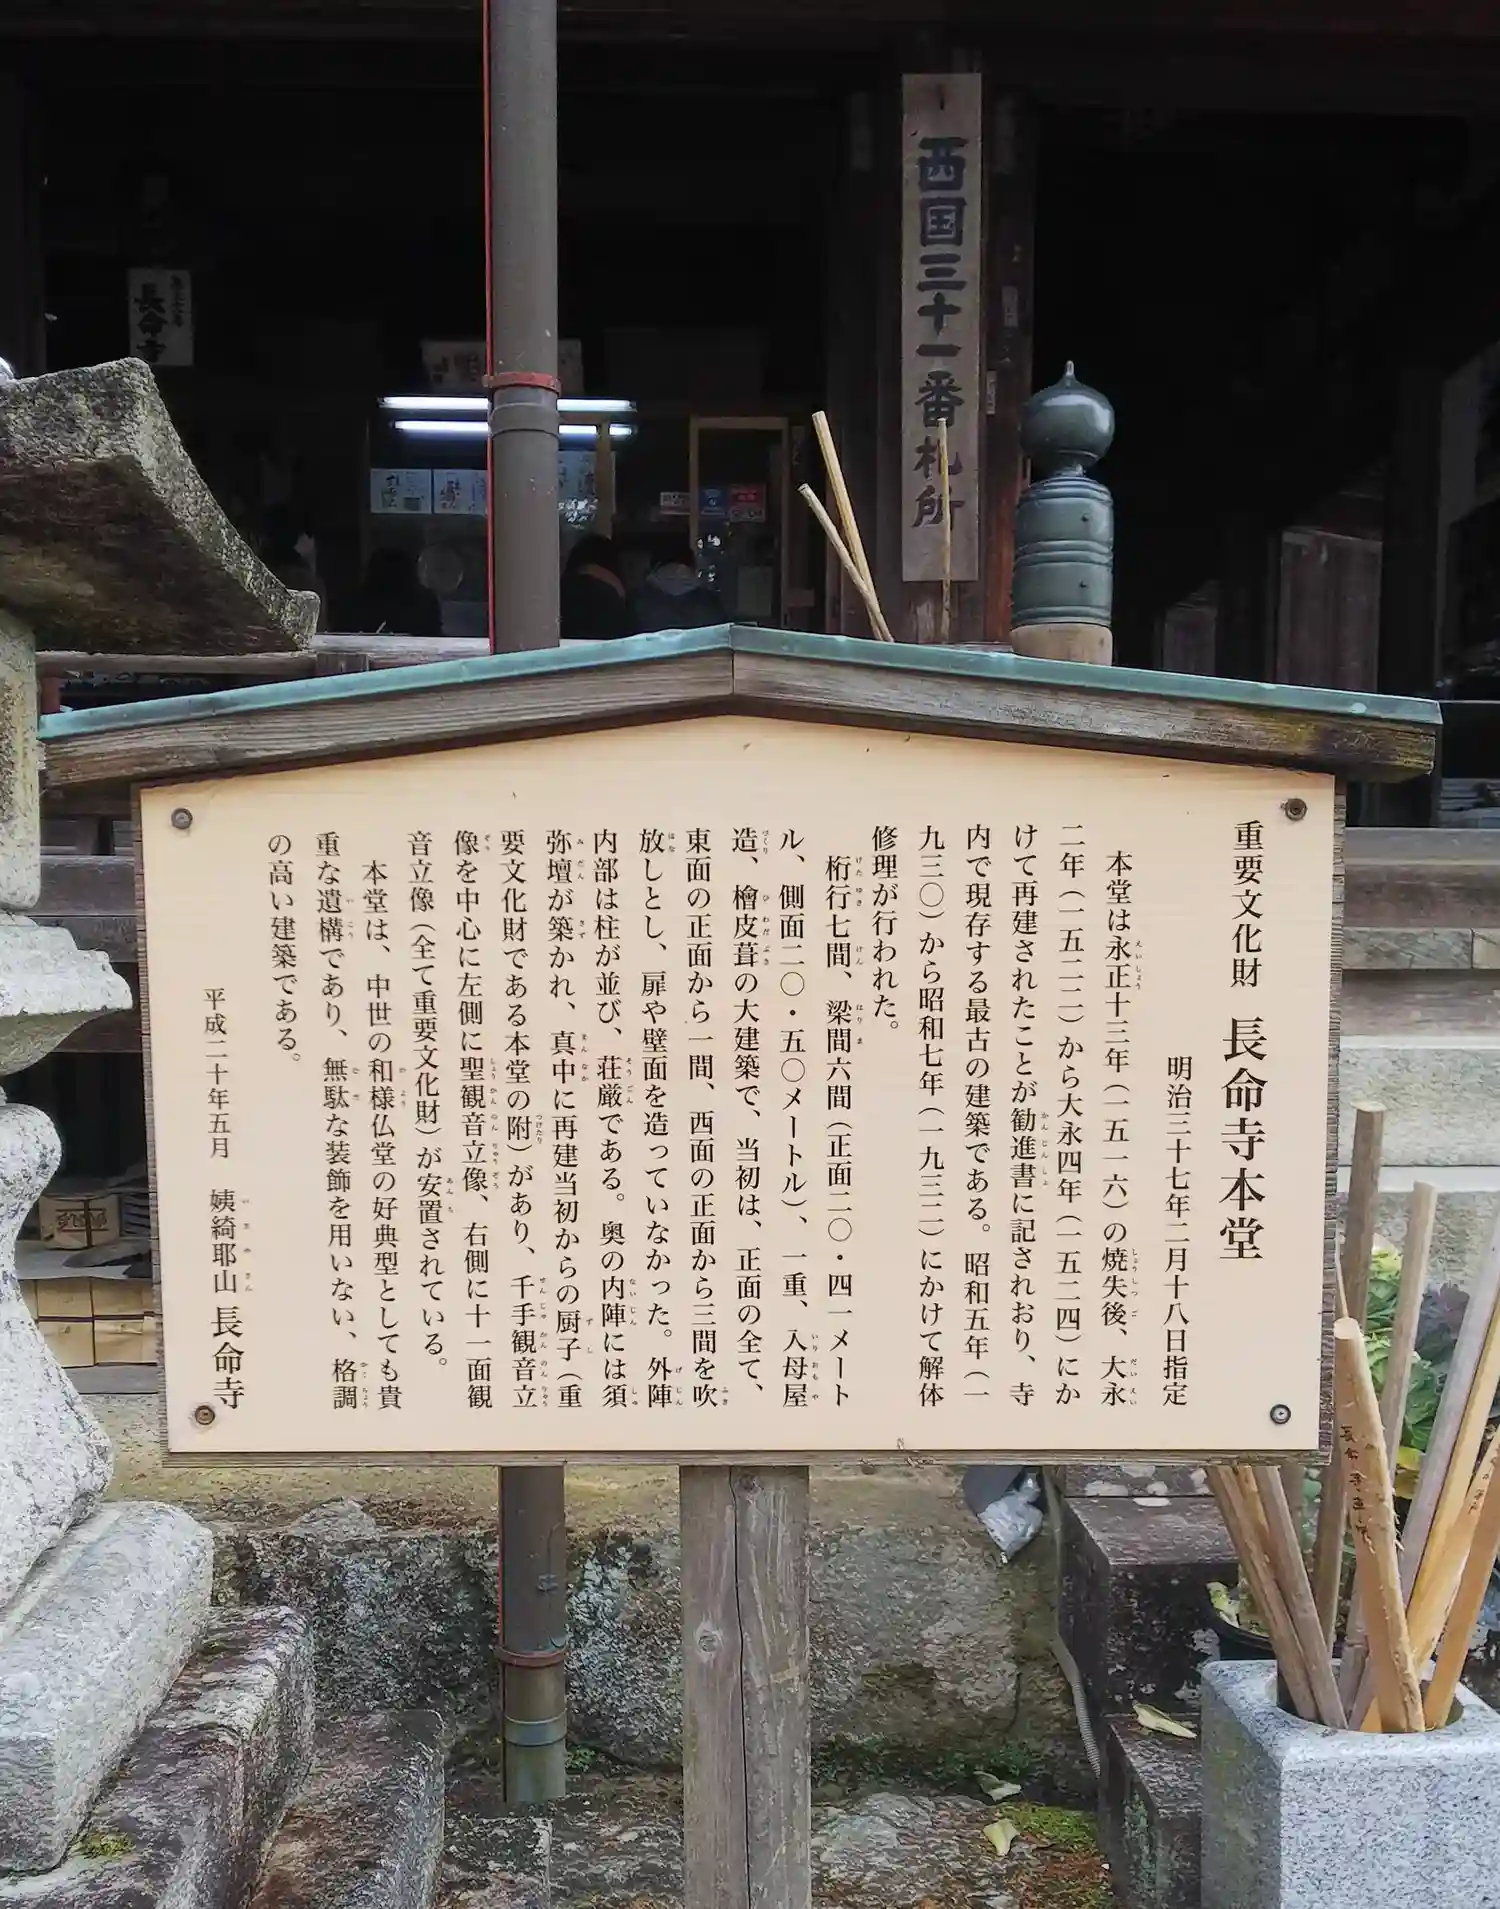 西国三十一番札所
長命寺
重要文化財 長命寺本堂
明治三十七年二月十八日指定
本堂は永正十三年（一五一六）の焼失後、大永
二年（一五二二）から大永四年（一五二四）にか
けて再建されたことが勧進書に記されおり、寺
内で現存する最古の建築である。昭和五年（一
九三〇）から昭和七年（一九三二）にかけて解体
修理が行われた。
桁行七間、梁間六間（正面二〇・四一メート
ル、側面二〇・五〇メートル）、一重、入母屋
造、檜皮葺の大建築で、当初は、正面の全て、
東面の正面から一間、西面の正面から三間を吹
放しとし、扉や壁面を造っていなかった。外陣
内部は柱が並び、荘厳である。奥の内陣には須
弥壇が築かれ、真中に再建当初からの厨子（重
要文化財である本堂の附）があり、千手観音立
像を中心に左側に聖観音立像、右側に十一面観
音立像（全て重要文化財）が安置されている。
本堂は、中世の和様仏堂の好典型としても貴
重な遺構であり、無駄な装飾を用いない、格調
の高い建築である。
平成二十年五月 姨綺耶山 長命寺